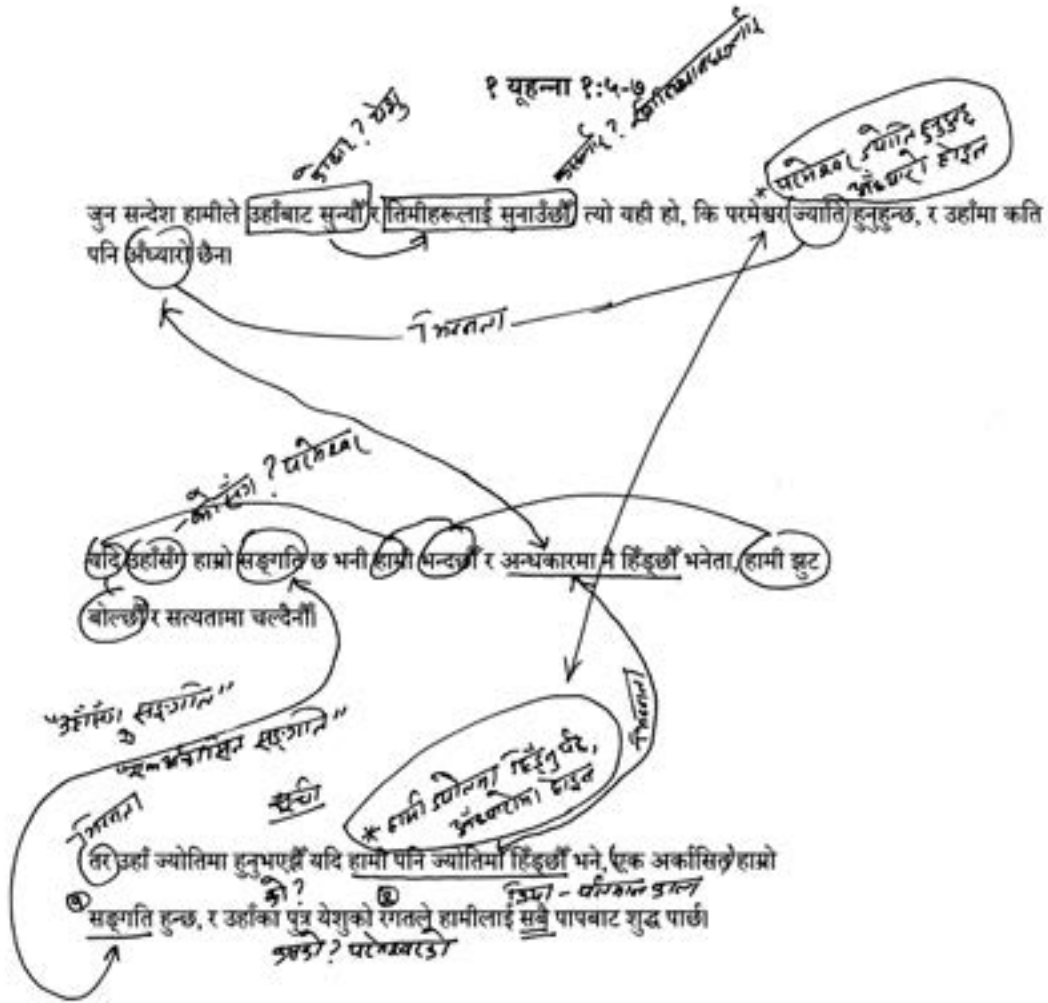 १ यूहन्ना १:५-७
कोबाट? येशू
कसलाई?
* परमेश्वर ज्योति हुनुहुन्छ
अँध्यारो होइन
जुन सन्देश हामीले उहाँबाट सुन्यौं र तिमीहरूलाई सुनाउँछौं त्यो यही हो, कि परमेश्वर ज्योति हुनुहुन्छ, र उहाँमा कति
पनि अँध्यारो छैन।
भिन्नता
कोसँग? परमेश्वर
यदि उहाँसँग हाम्रो सङ्गति छ भनी हामी भन्दछौं र अन्धकारमा नै हिँड्छौं भनेता, हामी झुट
बोल्छौं र सत्यतामा चल्दैनौं।
भिन्नता
"उहाँसँग सङ्गति"
"एक अर्कासित सङ्गति"
भिन्नता
सूची
* हामी ज्योतिमा हिँड्नु पर्छ,
अँध्यारोमा होइन
तर उहाँ ज्योतिमा हुनुभएझैँ यदि हामी पनि ज्योतिमा हिँड्छौं भने, एक अर्कासित हाम्रो
१ को? २ क्रिया - वर्तमान काल
सङ्गति हुन्छ, र उहाँका पुत्र येशूको रगतले हामीलाई सबै पापबाट शुद्ध पार्छ।
कसको? परमेश्वरको